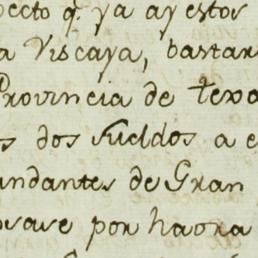 pecto q.e ya ay estos
a Viscaya, bastar
Provincia de texa
s dos sueldos a e
andantes de Gran
por haora